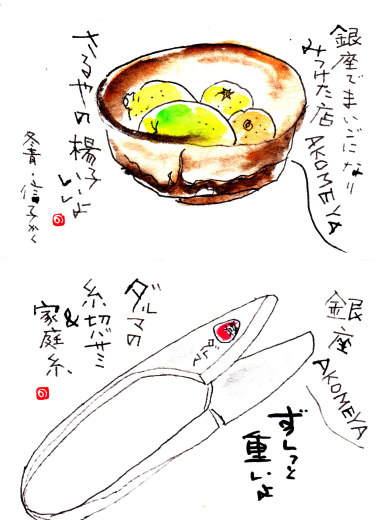 銀座でまいごになり
みつけた店
AKOMEYA
さるやの楊子いいよ
冬青・信子かく
銀座
AKOMEYA
ダルマの
糸切バサミ
&
家庭糸
ダルマ
ずしっと
重いよ